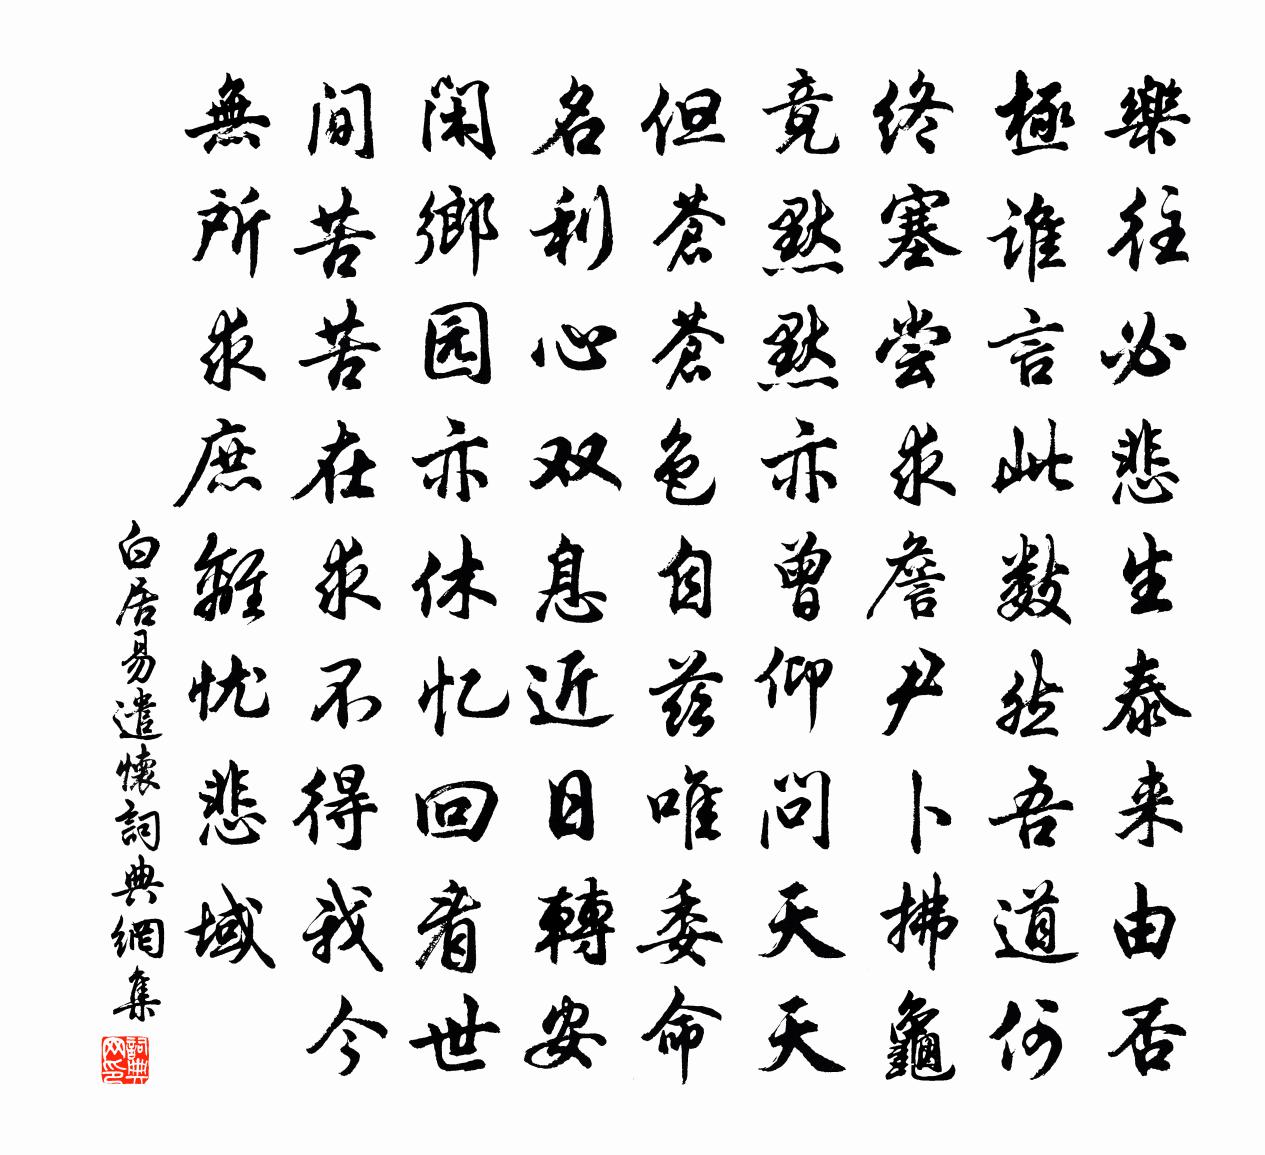 樂往必悲生泰来由否
極谁言此数然吾道何
终塞尝求詹尹卜拂龜
竟默默亦曾仰问天天
但蒼蒼色自茲唯委命
名利心双息近日轉安
闲鄉园亦休忆回看世
间苦苦在求不得我今
無所求庶離忧悲域
白居易遣懷詞典網集
詞典网印